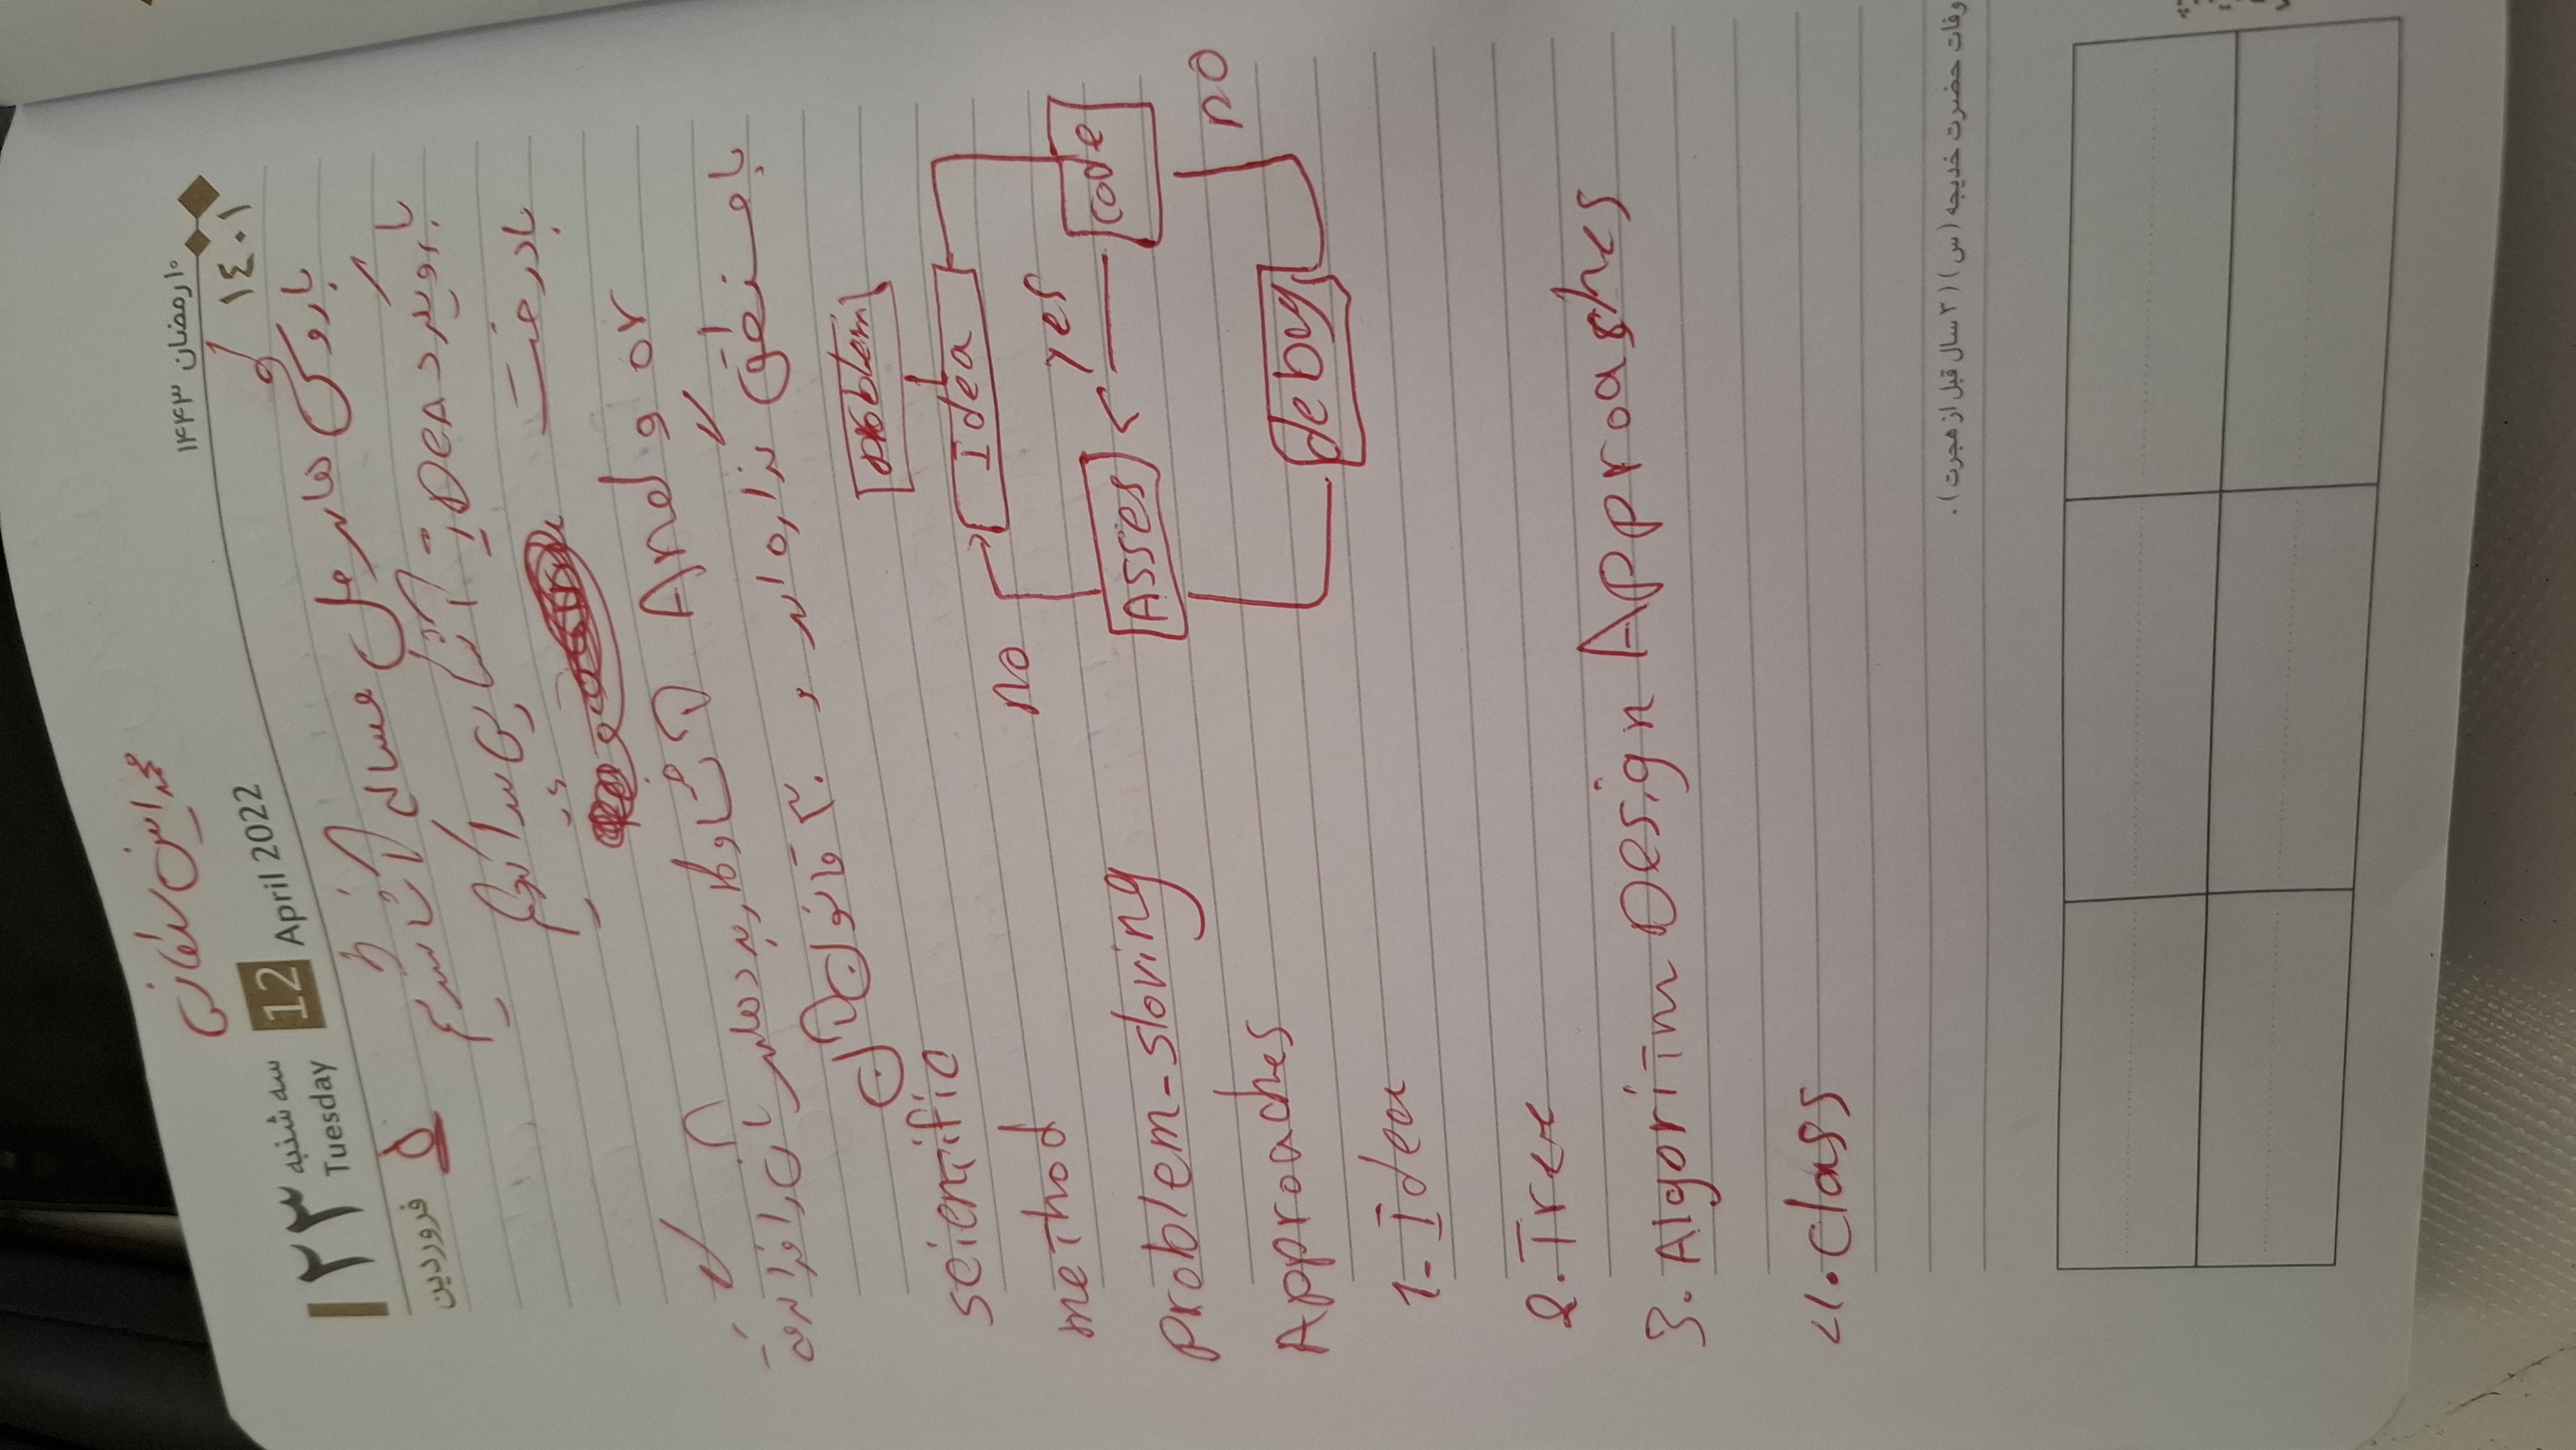 محمد امین سلطانی
۱۰ رمضان ۱۴۴۳
۱۴۰۱
۲۳ سه شنبه Tuesday 12 April 2022
فروردین
۵
با روش های حل مساله آشنا شدیم
با رویکرد IDEA آشنایی پیدا کردیم
با درخت
And و or آشنا و کاربردهای آن را فرا گرفته
با منطق گذاره ای و ۲۰ قانون آن
scientific
method
problem-sloving
Approaches
1- Idea
2. Tree
3. Algoritm Design Approaches
4. class
problem
Idea
no
yes
Asses
code
no
debug
وفات حضرت خدیجه (س) (۳ سال قبل از هجرت).